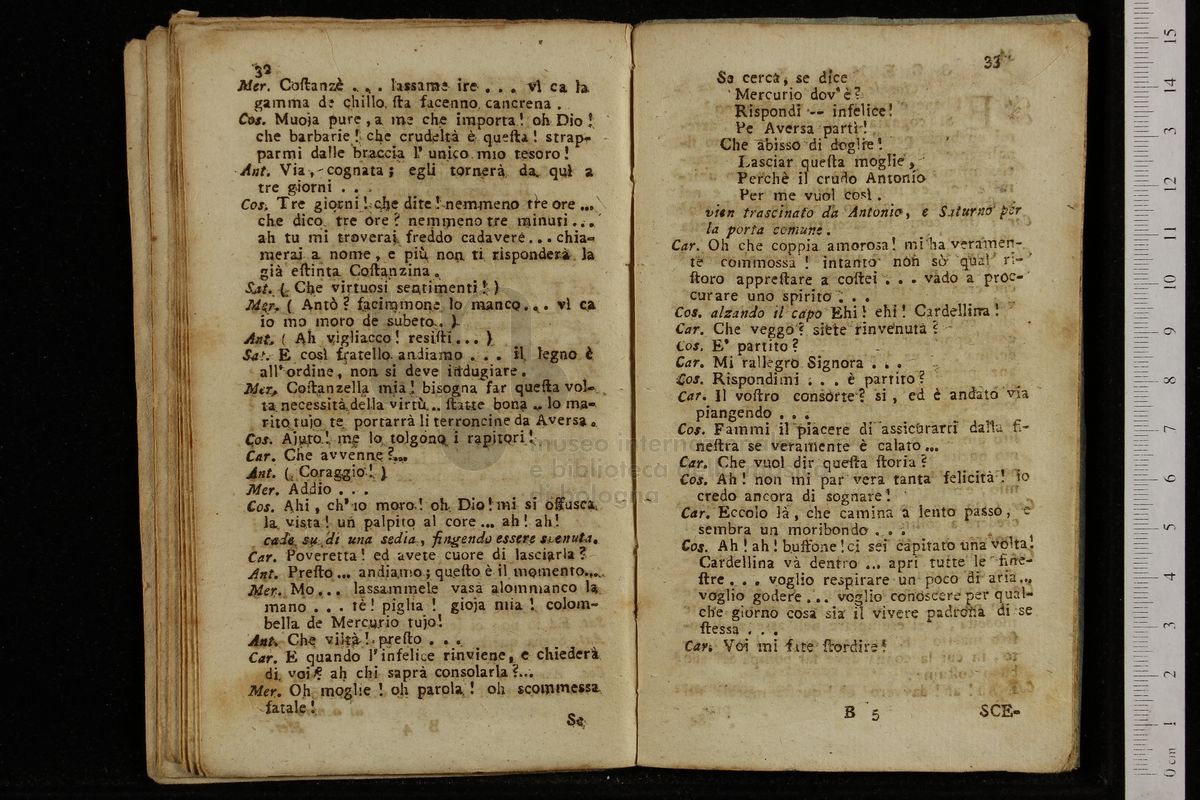 32
Mer. Coſtanzè . . . laſſame ire . . . vì ca la
gamma de chillo ſta facenno cancrena .
Cos. Muoja pure, a me che importa! oh Dio!
che barbarie! che crudeltà è queſta! strap-
parmi dalle braccia l' unico mio tesoro!
Ant. Via, cognata; egli tornerà da quì a
tre giorni . . .
Cos. Tre giorni! che dite! nemmeno tre ore ...
che dico tre ore? nemmeno tre minuti...
ah tu mi troverai freddo cadavere... chia-
merai a nome, e più non ti risponderà la
già eſtinta Coſtanzina.
Sat. ( Che virtuosi sentimenti! )
Mer. ( Antò? facimmone lo manco... vì ca
io mo moro de subeto. )
Ant. ( Ah vigliacco! resiſti... )
Sat. E così fratello andiamo . . . il legno è
all' ordine, non si deve indugiare.
Mer. Coſtanzella mia! bisogna far queſta vol-
ta necessità della virtù... ſtatte bona .. lo ma-
rito tujo te portarrà li terroncine da Aversa.
Cos. Ajuto! me lo tolgono i rapitori!
Car. Che avvenne?...
Ant. ( Coraggio! )
Mer. Addio . . .
Cos. Ahi, ch' io moro! oh Dio! mi si offusca
la vista! un palpito al core ... ah! ah!
cade su di una sedia, fingendo essere svenuta.
Car. Poveretta! ed avete cuore di lasciarla?
Ant. Preſto ... andiamo; queſto è il momento...
Mer. Mo... lassammele vasà alommanco la
mano . . . tè! piglia! gioja mia! colom-
bella de Mercurio tujo!
Ant. Che viltà! preſto . . .
Car. E quando l' infelice rinviene, e chiederà
di voi? ah chi saprà consolarla?...
Mer. Oh moglie! oh parola! oh scommessa
fatale!
Se
33
Se cerca, se dice
Mercurio dov' è?
Rispondi -- infelice!
Pe Aversa partì!
Che abisso di doglie!
Lasciar queſta moglie,
Perchè il crudo Antonio
Per me vuol così.
vien trascinato da Antonio, e Saturno per
la porta comune.
Car. Oh che coppia amorosa! mi ha veramen-
te commossa! intanto non sò qual ri-
ſtoro appreſtare a coſtei . . . vado a proc-
curare uno spirito . . .
Cos. alzando il capo Ehi! ehi! Cardellina!
Car. Che veggo? siete rinvenuta?
Cos. E' partito?
Car. Mi rallegro Signora . . .
Cos. Rispondimi . . . è partito?
Car. Il voſtro consorte? si, ed è andato via
piangendo . . .
Cos. Fammi il piacere di assicurarti dalla fi-
neſtra se veramente è calato ...
Car. Che vuol dir queſta ſtoria?
Cos. Ah! non mi par vera tanta felicità! io
credo ancora di sognare!
Car. Eccolo là, che camina a lento passo, e
sembra un moribondo . . .
Cos. Ah! ah! buffone! ci sei capitato una volta!
Cardellina và dentro ... apri tutte le fine-
ſtre . . . voglio respirare un poco di aria...
voglio godere ... voglio conoscere per qual-
che giorno cosa sia il vivere padrona di se
ſtessa . . .
Car. Voi mi fate ſtordire!
B 5 SCE-
museo interna
e biblioteca
bologna
0 cm 1 2 3 4 5 6 7 8 9 10 11 12 13 14 15